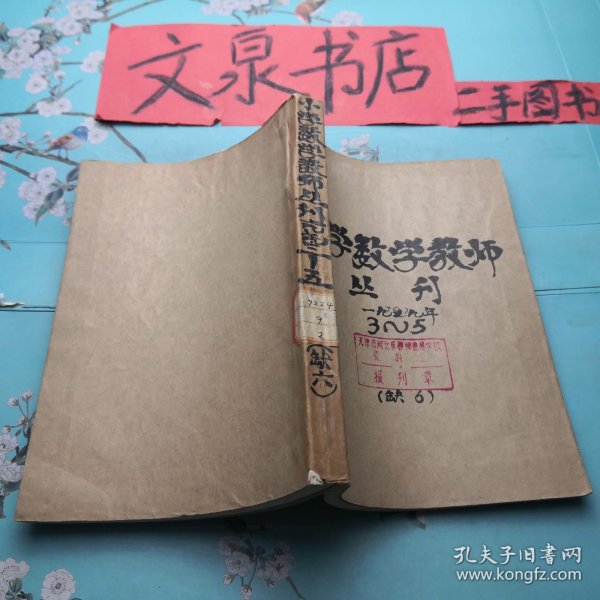 文泉书店
二手图书
小学数学教师丛刊
三—五
7224
9
2
(缺六)
学数学教师
丛刊
一九五九年
3~5
资料
报刊章
(缺6)
孔夫子旧书网
www.kongfz.com